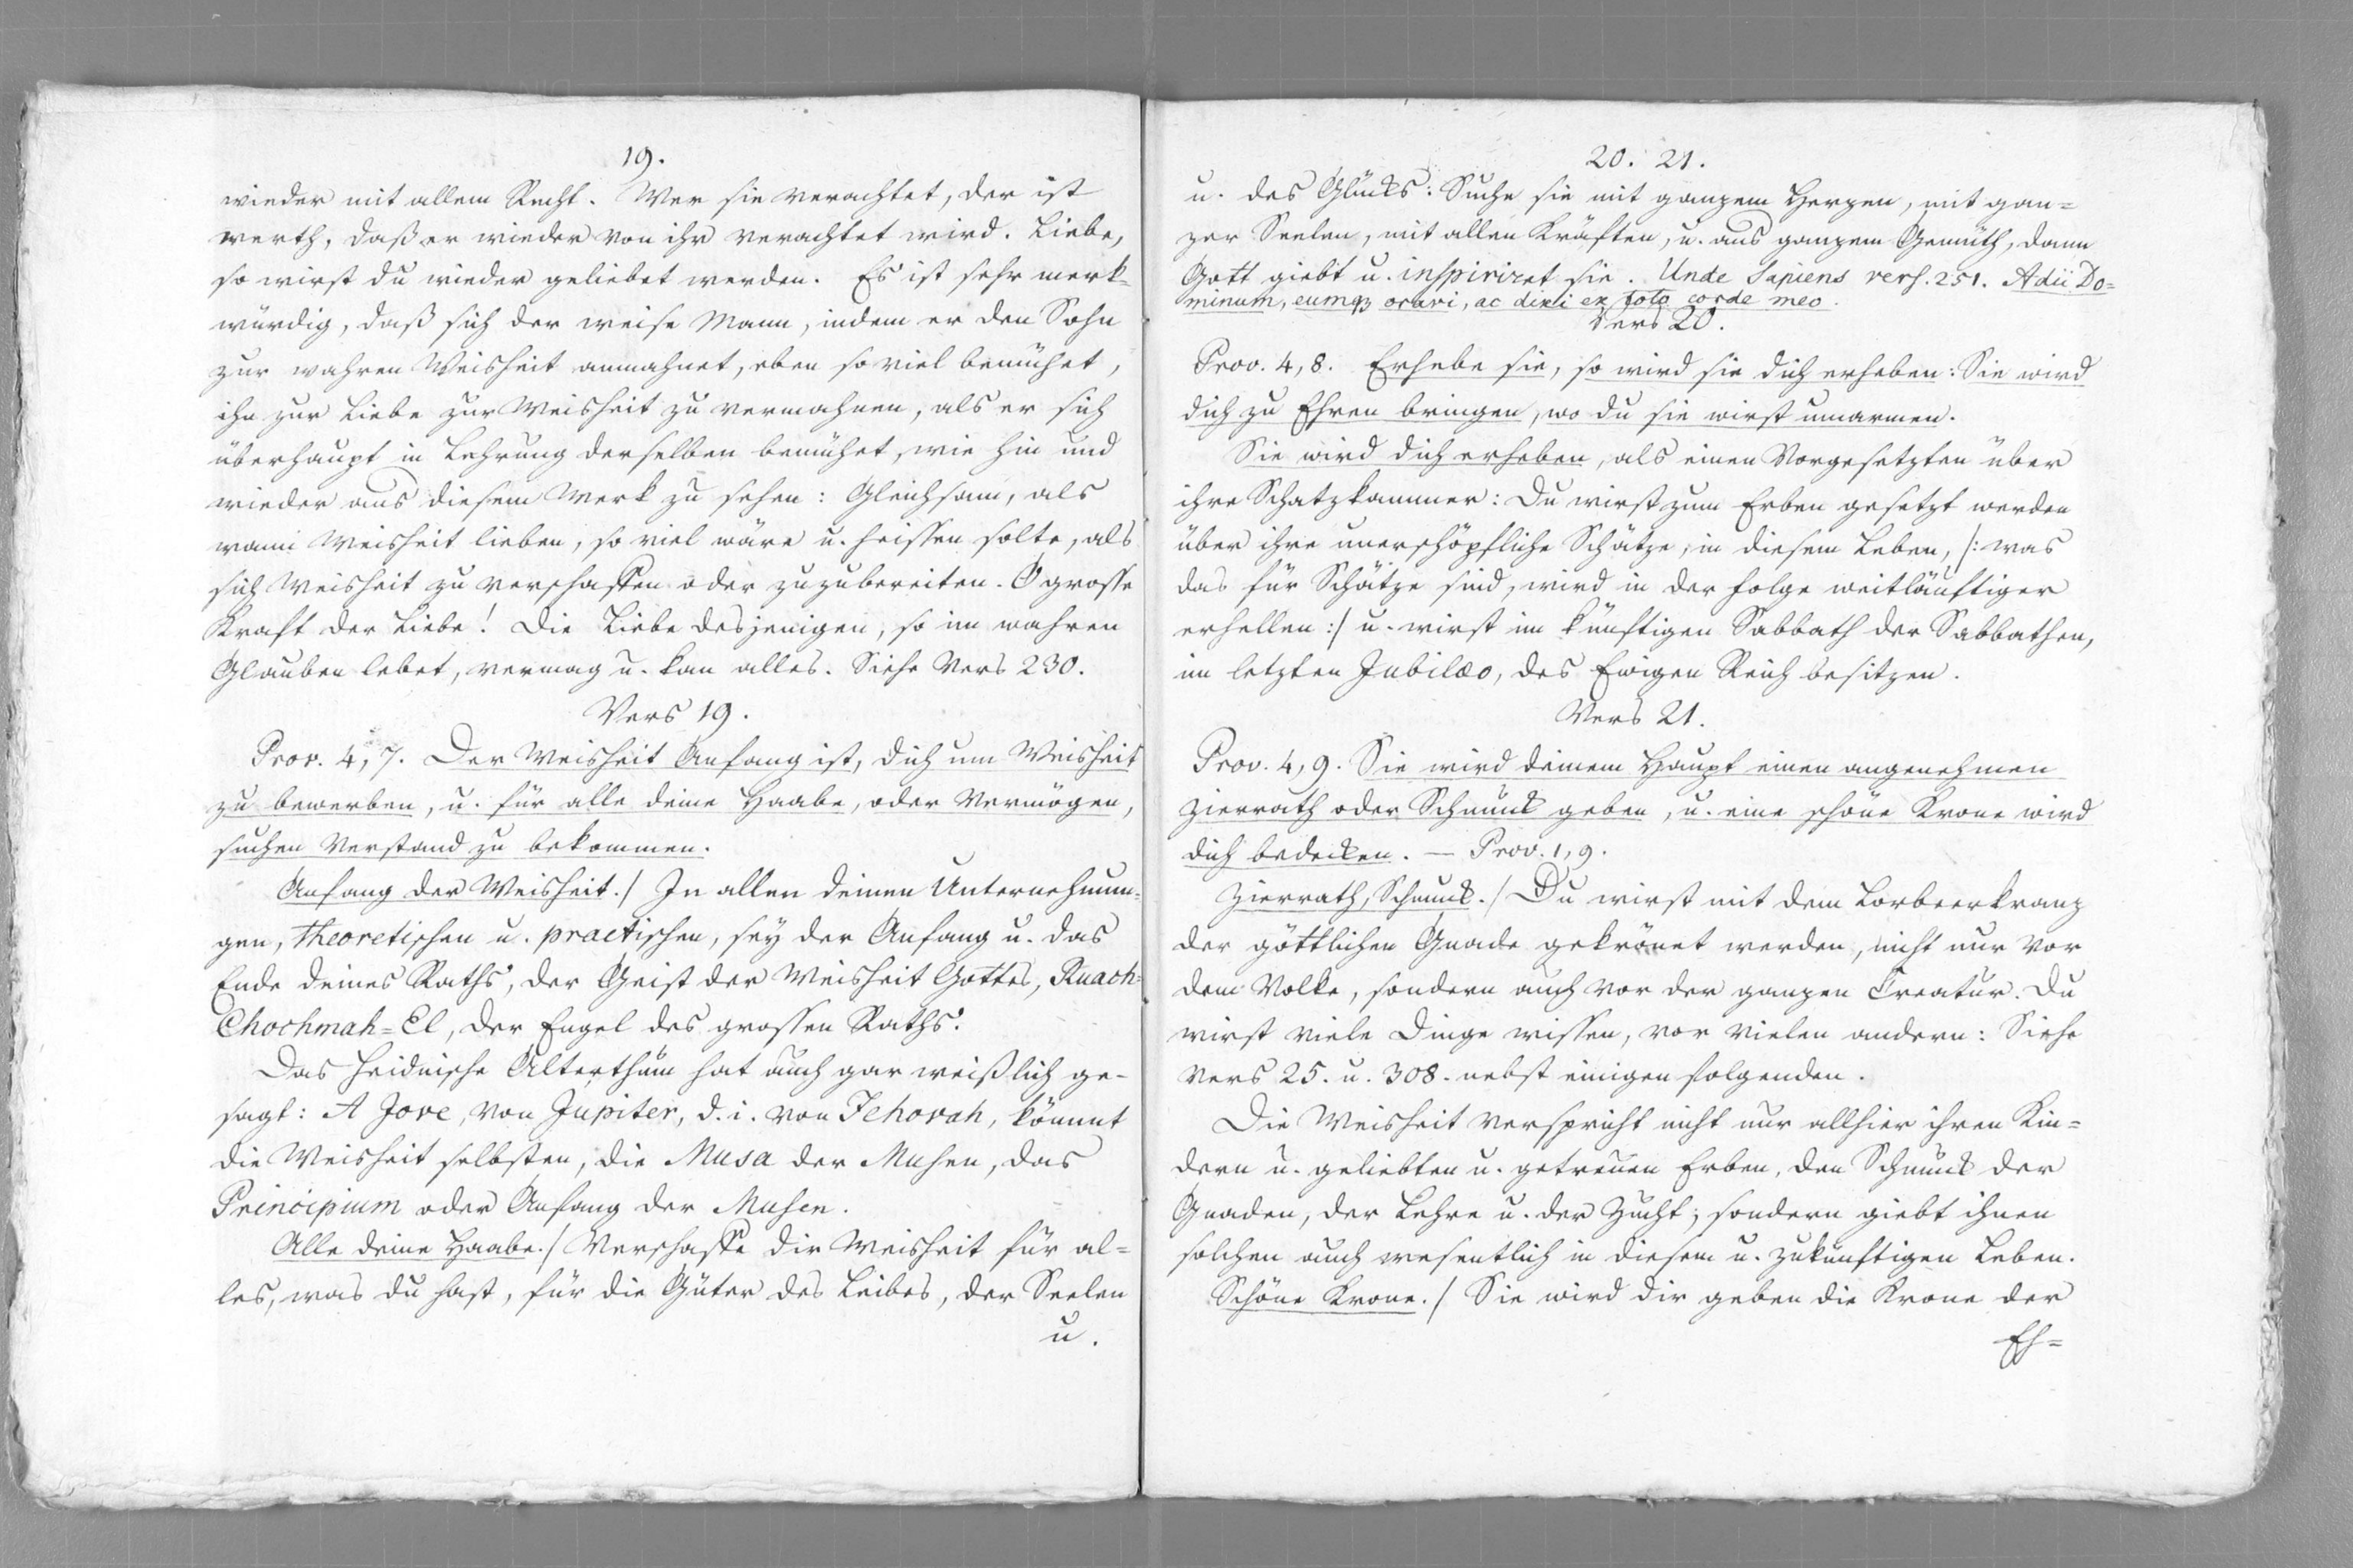 19.
wieder mit allem Recht. Wer sie verachtet, der ist
werth, daß er wieder von ihr verachtet wird. Liebe,
so wirst du wieder geliebet werden. Es ist sehr merk-
würdig, daß sich der weise Mann, indem er den Sohn
zur wahren Weisheit anmahnet, eben so viel bemühet,
ihn zur Liebe zur Weisheit zu vermahnen, als er sich
überhaupt in Lehrung derselben bemühet, wie hin und
wieder aus diesem Werk zu sehen: Gleichsam, als
wann Weisheit lieben, so viel wäre u. heissen solte, als
sich Weisheit zu verschaffen oder zuzubereiten. O grosse
Kraft der Liebe! Die Liebe desjenigen, so im wahren
Glauben lebet, vermag u. kan alles. Siehe Vers 230.
Vers 19.
Prov. 4, 7. Der Weisheit Anfang ist, dich um Weisheit
zu bewerben, u. für alle deine Haabe, oder Vermögen,
suchen Verstand zu bekommen.
Anfang der Weisheit./ In allen deinen Unternehmun-
gen, theoretischen u. practischen, sey der Anfang u. das
Ende deines Raths, der Geist der Weisheit Gottes, Ruach=
Chochmah=El, der Engel des grossen Raths.
Das heidnische Alterthum hat auch gar weißlich ge-
sagt: A Jove, von Jupiter, d. i. von Jehovah, kömmt
die Weisheit selbsten, die Musa der Musen, das
Principium oder Anfang der Musen.
Alle deine Haabe./ Verschaffe dir Weisheit für al=
les, was du hast, für die Güter des Leibes, der Seelen
u.
20. 21.
u. des Glücks: Suche sie mit ganzem Herzen, mit gan=
zer Seelen, mit allen Kräften, u. aus ganzem Gemüth, dann
Gott giebt u. inspiriret sie. Unde Sapiens vers. 251. Adii Do=
minum, eumqȝ oravi, ac dixi ex toto corde meo.
Vers 20.
Prov. 4, 8. Erhebe sie, so wird sie dich erheben: Sie wird
dich zu Ehren bringen, wo du sie wirst umarmen.
Sie wird dich erheben, als einen Vorgesetzten über
ihre Schatzkammer: Du wirst zum Erben gesetzt werden
über ihre unerschöpfliche Schätze, in diesem Leben, /: was
das für Schätze sind, wird in der Folge weitläuftiger
erhellen :/ u. wirst im künftigen Sabbath der Sabbathen,
im letzten Jubilæo, des Ewigen Reich besitzen.
Vers 21.
Prov. 4, 9. Sie wird deinem Haupt einen angenehmen
Zierrath oder Schmuck geben, u. eine schöne Krone wird
dich bedecken. — Prov. 1, 9.
Zierrath, Schmuck./ Du wirst mit dem Lorbeerkranz
der göttlichen Gnade gekrönet werden, nicht nur vor
dem Volke, sondern auch vor der ganzen Creatur. Du
wirst viele Dinge wissen, vor vielen andern: Siehe
Vers 25. u. 308. nebst einigen folgenden.
Die Weisheit verspricht nicht nur allhier ihren Kin=
dern u. geliebten u. getreuen Erben, den Schmuck der
Gnaden, der Lehre u. der Zucht; sondern giebt ihnen
solchen auch wesentlich in diesem u. zukünftigen Leben.
Schöne Krone./ Sie wird dir geben die Krone der
Eh=